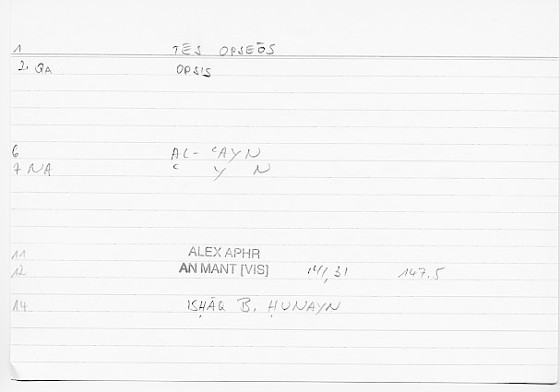 1 TĒS OPSEŌS
2. QA OPSIS
6 AL- ʿAYN
7 NA ʿ Y N
11 ALEX APHR
12 AN MANT [VIS] 141,31 147.5
14 ISḤĀQ B. ḤUNAYN